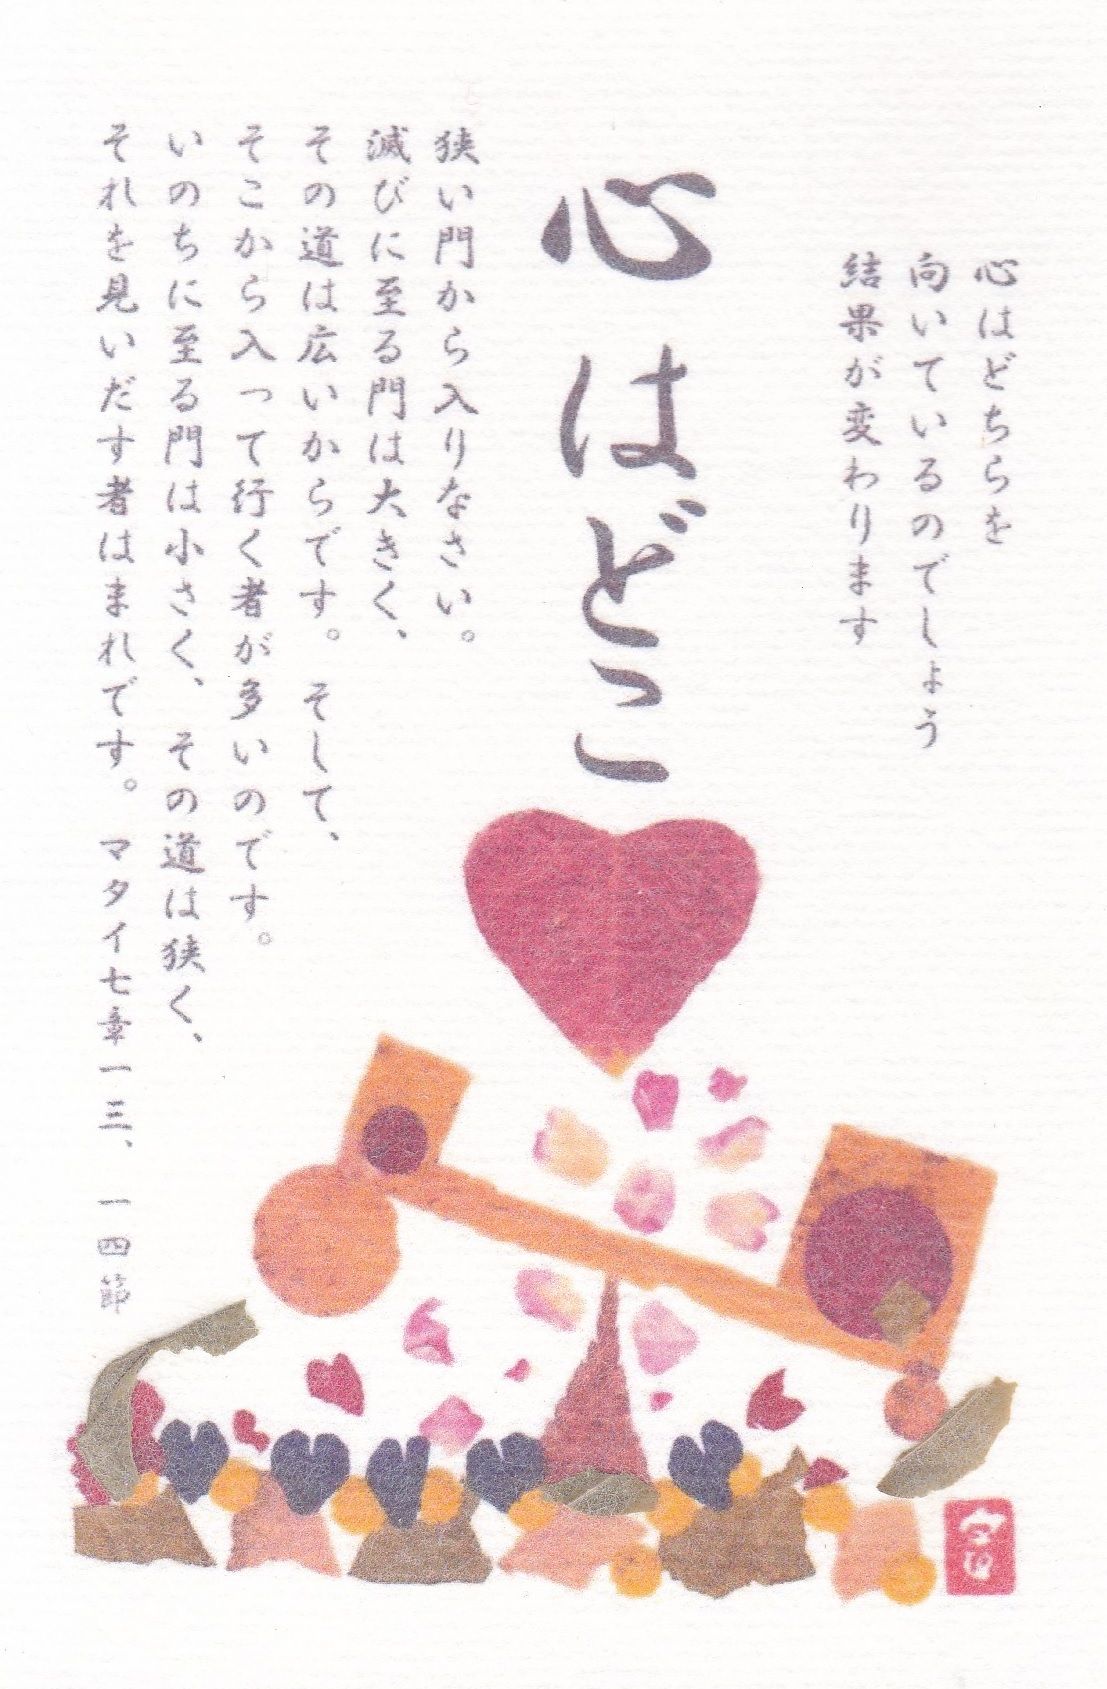 心はどちらを
向いているのでしょう
結果が変わります
心はどこ
狭い門から入りなさい。
滅びに至る門は大きく、
その道は広いからです。そして、
そこから入って行く者が多いのです。
いのちに至る門は小さく、その道は狭く、
それを見いだす者はまれです。マタイ七章一三、一四節